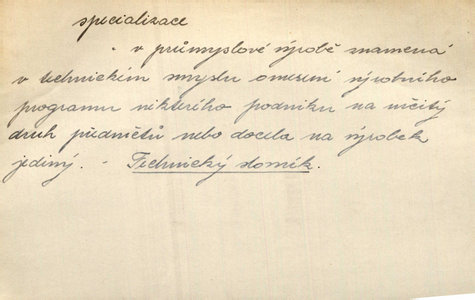 specializace
- v průmyslové výrobě znamená
v technickém smyslu omezení výrobního
programu některého podniku na určitý
druh předmětů nebo docela na výrobek
jediný. - Technický slovník.